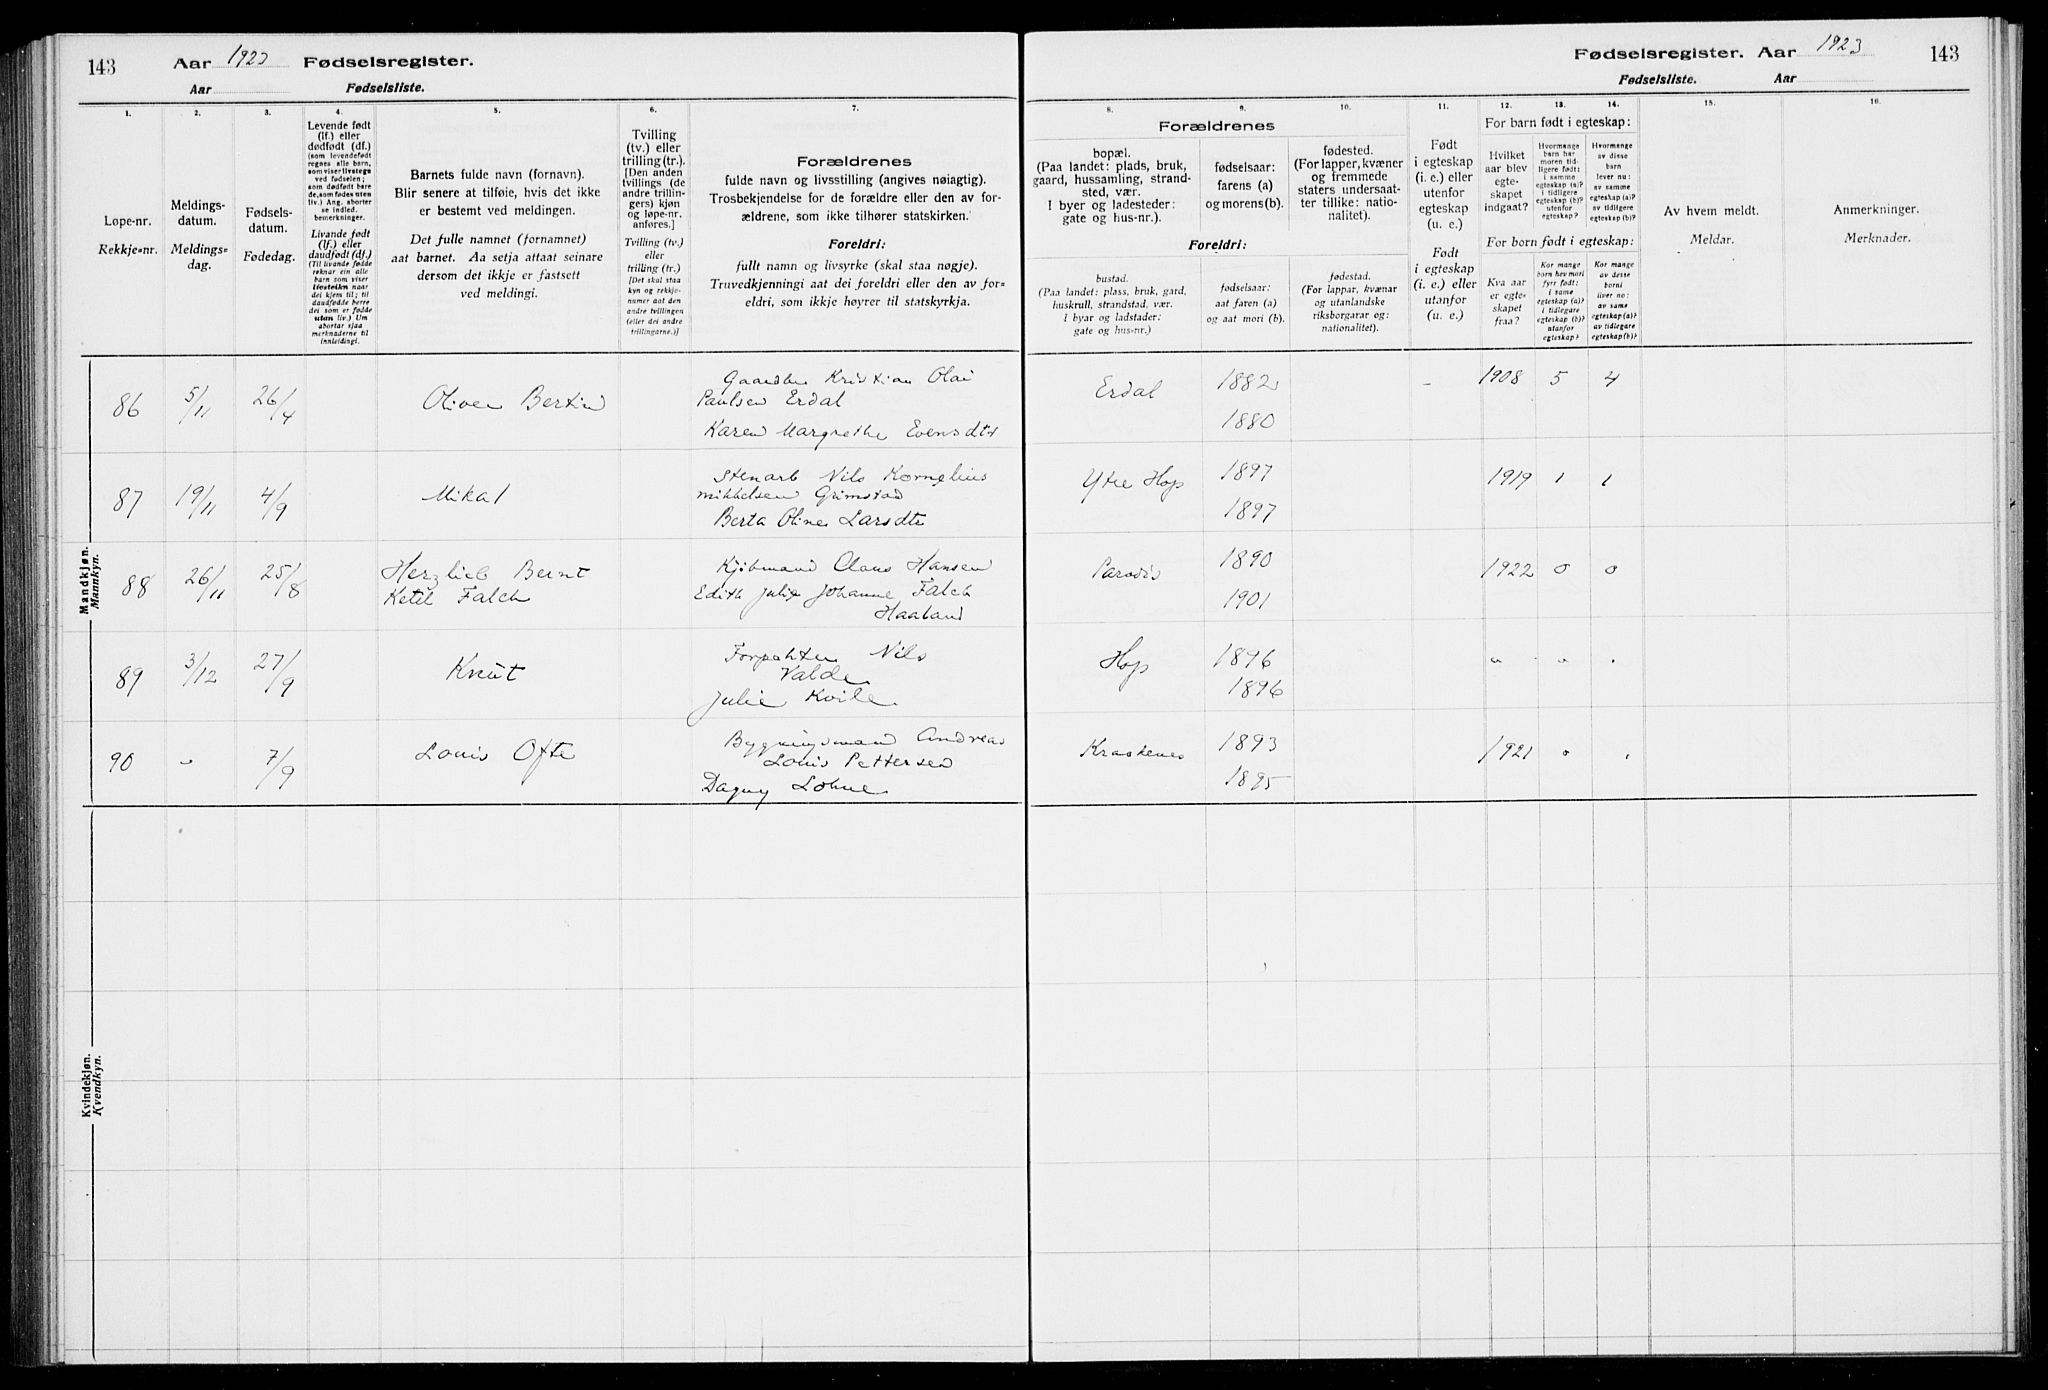 143 Aar 1923 Fødselsregister.
Aar Fødselsliste.
1. 2. 3. 4. 5. 6. 7.
Løpe-nr.
Rekkje-nr.
Meldings-
datum.
Meldings-
dag.
Fødsels-
datum.
Fødedag.
Levende født
(lf.) eller
dødfødt (df.)
(som levendefødt
regnes alle barn,
som viser livstegn
ved fødselen;
som dødfødt bare
de, som fødes uten
liv.) Ang. aborter
se indled.
bemerkninger.
Livande født
(lf.) eller
daudfødt (df.)
(Til livande fødde
reknar ein alle
barn som viser
livsteikn naar
dei kjem til; til
daudfødde berre
dei som er fødde
utan liv.) Um
abortar sjaa
merknaderne til
innleidingi.
Barnets fulde navn (fornavn).
Blir senere at tilføie, hvis det ikke
er bestemt ved meldingen.
Det fulle namnet (fornamnet)
aat barnet. Aa setja attaat seinare
dersom det ikkje er fastsett
ved meldingi.
Tvilling
(tv.) eller
trilling (tr.).
[Den anden
tvillings (de
andre trillin-
gers) kjøn
og løpe-nr.
anføres.]
Tvilling (tv.)
eller
trilling (tr.)
[Det skal staa
kyn og rekkje-
numer aat den
andre tvillingen
(eller dei andre
trillingarne.)]
Forældrenes
fulde navn og livsstilling (angives nøiagtig).
Trosbekjendelse for de forældre eller den av for-
ældrene, som ikke tilhører statskirken.
Foreldri:
fullt namn og livsyrke (skal staa nøgje).
Truvedkjenningi aat dei foreldri eller den av for-
eldri, som ikkje høyrer til statskyrkja.
Mandkjøn.
Mannkyn.
86 5/11 26/4 Oliver Bertin
Gaardbr Kristian Olai
Paulsen Erdal
Karen Margrethe Evensdtr
87 19/11 4/9 Mikal
Stenarb Nils Kornelius
Mikkelsen Grimstad
Berta Oline Larsdtr
88 26/11 25/8 Herzlieb Bernt
Ketil Falch
Kjøbmand Claus Hansen
Edith Julie Johanne Falch
Haaland
89 3/12 27/9 Knut
Forpakter Nils
Valde
Julie Kvile
90 " 7/9 Louis Ofte
Bygningsmand Andreas
Louis Pettersen
Dagny Lohne
Kvindekjøn.
Kvendkyn.
Fødselsregister. Aar 1923 143
Fødselsliste. Aar
8. 9. 10. 11. 12. 13. 14. 15. 16.
Forældrenes
bopæl.
(Paa landet: plads, bruk,
gaard, hussamling, strand-
sted, vær.
I byer og ladesteder:
gate og hus-nr.).
fødselsaar:
farens (a)
og morens (b).
fødested.
(For lapper, kvæner
og fremmede
staters undersaat-
ter tillike: natio-
nalitet).
Foreldri:
bustad.
(Paa landet: plass, bruk, gard,
huskrull, strandstad, vær.
I byar og ladstader:
gate og hus-nr.)
fødselsaar:
aat faren (a)
og aat mori (b).
fødestad.
(For lappar, kvænar
og utanlandske
riksborgarar og:
nationalitet).
Født
i egteskap
(i. e.) eller
utenfor
egteskap
(u. e.)
Født
i egteskap
(i. e.) eller
utanfor
(u. e.)
For barn født i egteskap:
Hvilket
aar blev
egte-
skapet
indgaat?
Hvormange
barn har
moren tid-
ligere født:
i samme
egteskap (a)?
i tidligere
egteskap (b)?
utenfor
egteskap?
Hvormange
av disse
barn
lever nu:
av samme
egteskap (a)?
av tidligere
egteskap (b)?
For born født i egteskap:
Kva aar
er egte-
skapet
fraa?
Kor mange
born hev mori
fyrr født:
i same
egteskap (a)?
i tidlegare
egteskap (b)?
utanfor
egteskap?
Kor mange
av desse
borni
liver no:
av same
egteskap (a)?
av tidlegare
egteskap (b)?
Av hvem meldt.
Meldar.
Anmerkninger.
Merknader.
Erdal 1882 - 1908 5 4
1880
Ytre Hop 1897 1919 1 1
1897
Paradis 1890 1922 0 0
1901
Hop 1876 " " "
1896
Kraakenes 1893 1921 0
1895